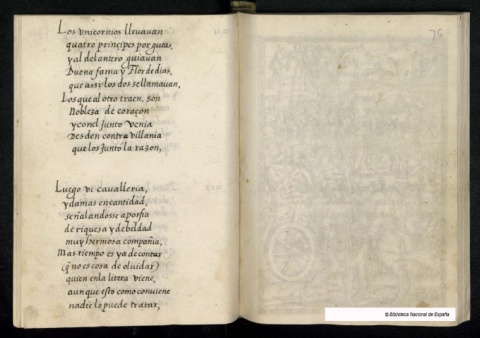 Los vnicornios lleuauan
quatro principes por guias,
y al delantero guiauan
Buena fama y Flordedias,
que assy los dos se llamauan,
Los que al otro traen, son
Nobleza de coraçon
y con el Junto venia
Desden contra villania
que los Juntó la razon,
Luego vi caualleria,
y damas en cantidad,
señalandosse a porfia
de riquesa y de beldad
muy hermosa compañia,
Mas tiempo es ya de contar
(q̃ no es cosa de oluidar)
quien en la litera viene,
aunque esto como conuiene
nadie lo puede tratar,
© Biblioteca Nacional de España